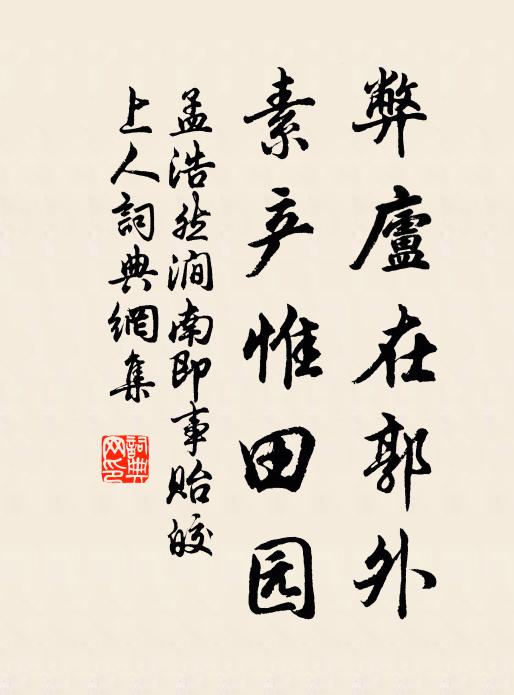 弊廬在郭外
素产惟田园
孟浩然澗南即事貽皎
上人詞典網集
詞典网印